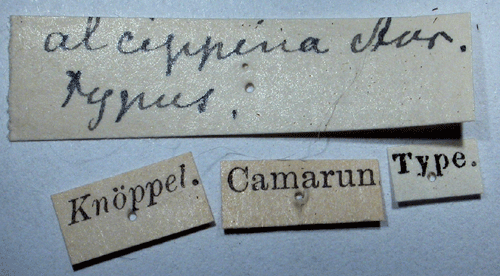 alcippina Aur.
Typus.
Knöppel.
Camarun
Type.